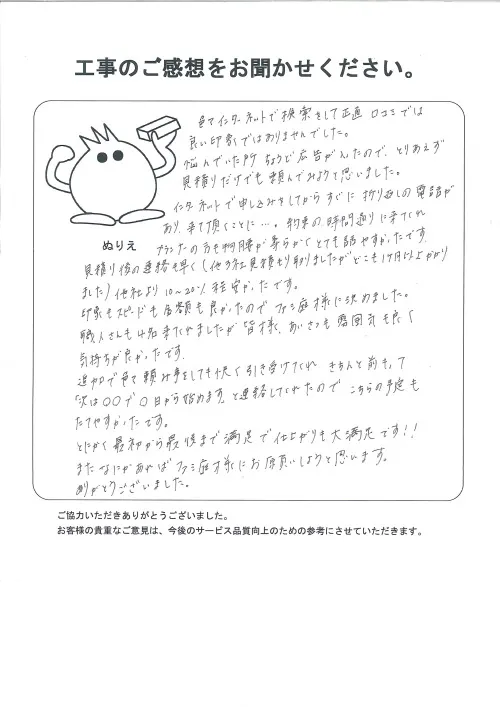 工事のご感想をお聞かせください。
色々インターネットで検索をして正直口コミでは
良い印象ではありませんでした。
悩んでいた所、ちょうど広告が入たので、とりあえず
見積りだけでも頼んでみようと思いました。
インターネットで申し込みをしてからすぐに折り返しの電話が
あり、来て頂くことに…。約束の時間通りに来てくれ
プランナーの方も物腰が柔らかくとても話やすかったです。
ぬりえ
見積り後の連絡も早く(他3社見積もり取りましたがどこも1ヶ月以上かかり
ました)他社より10〜20%程安かったです。
印象もスピードも金額も良かったのでファミ庭様に決めました。
職人さんも4名来てくれましたが皆様、あいさつも雰囲気も良く
気持ちが良かったです。
追加で色々頼み事をしても快く引き受けてくれ、きちんと前もって
「次は○○で○日から始めます」と連絡してくれたので こちらの予定も
たてやすかったです。
とにかく最初から最後まで満足で仕上がりも大満足です!!
またなにかあればファミ庭様にお願いしようと思います。
ありがとうございました。
ご協力いただきありがとうございました。
お客様の貴重なご意見は、今後のサービス品質向上のための参考にさせていただきます。